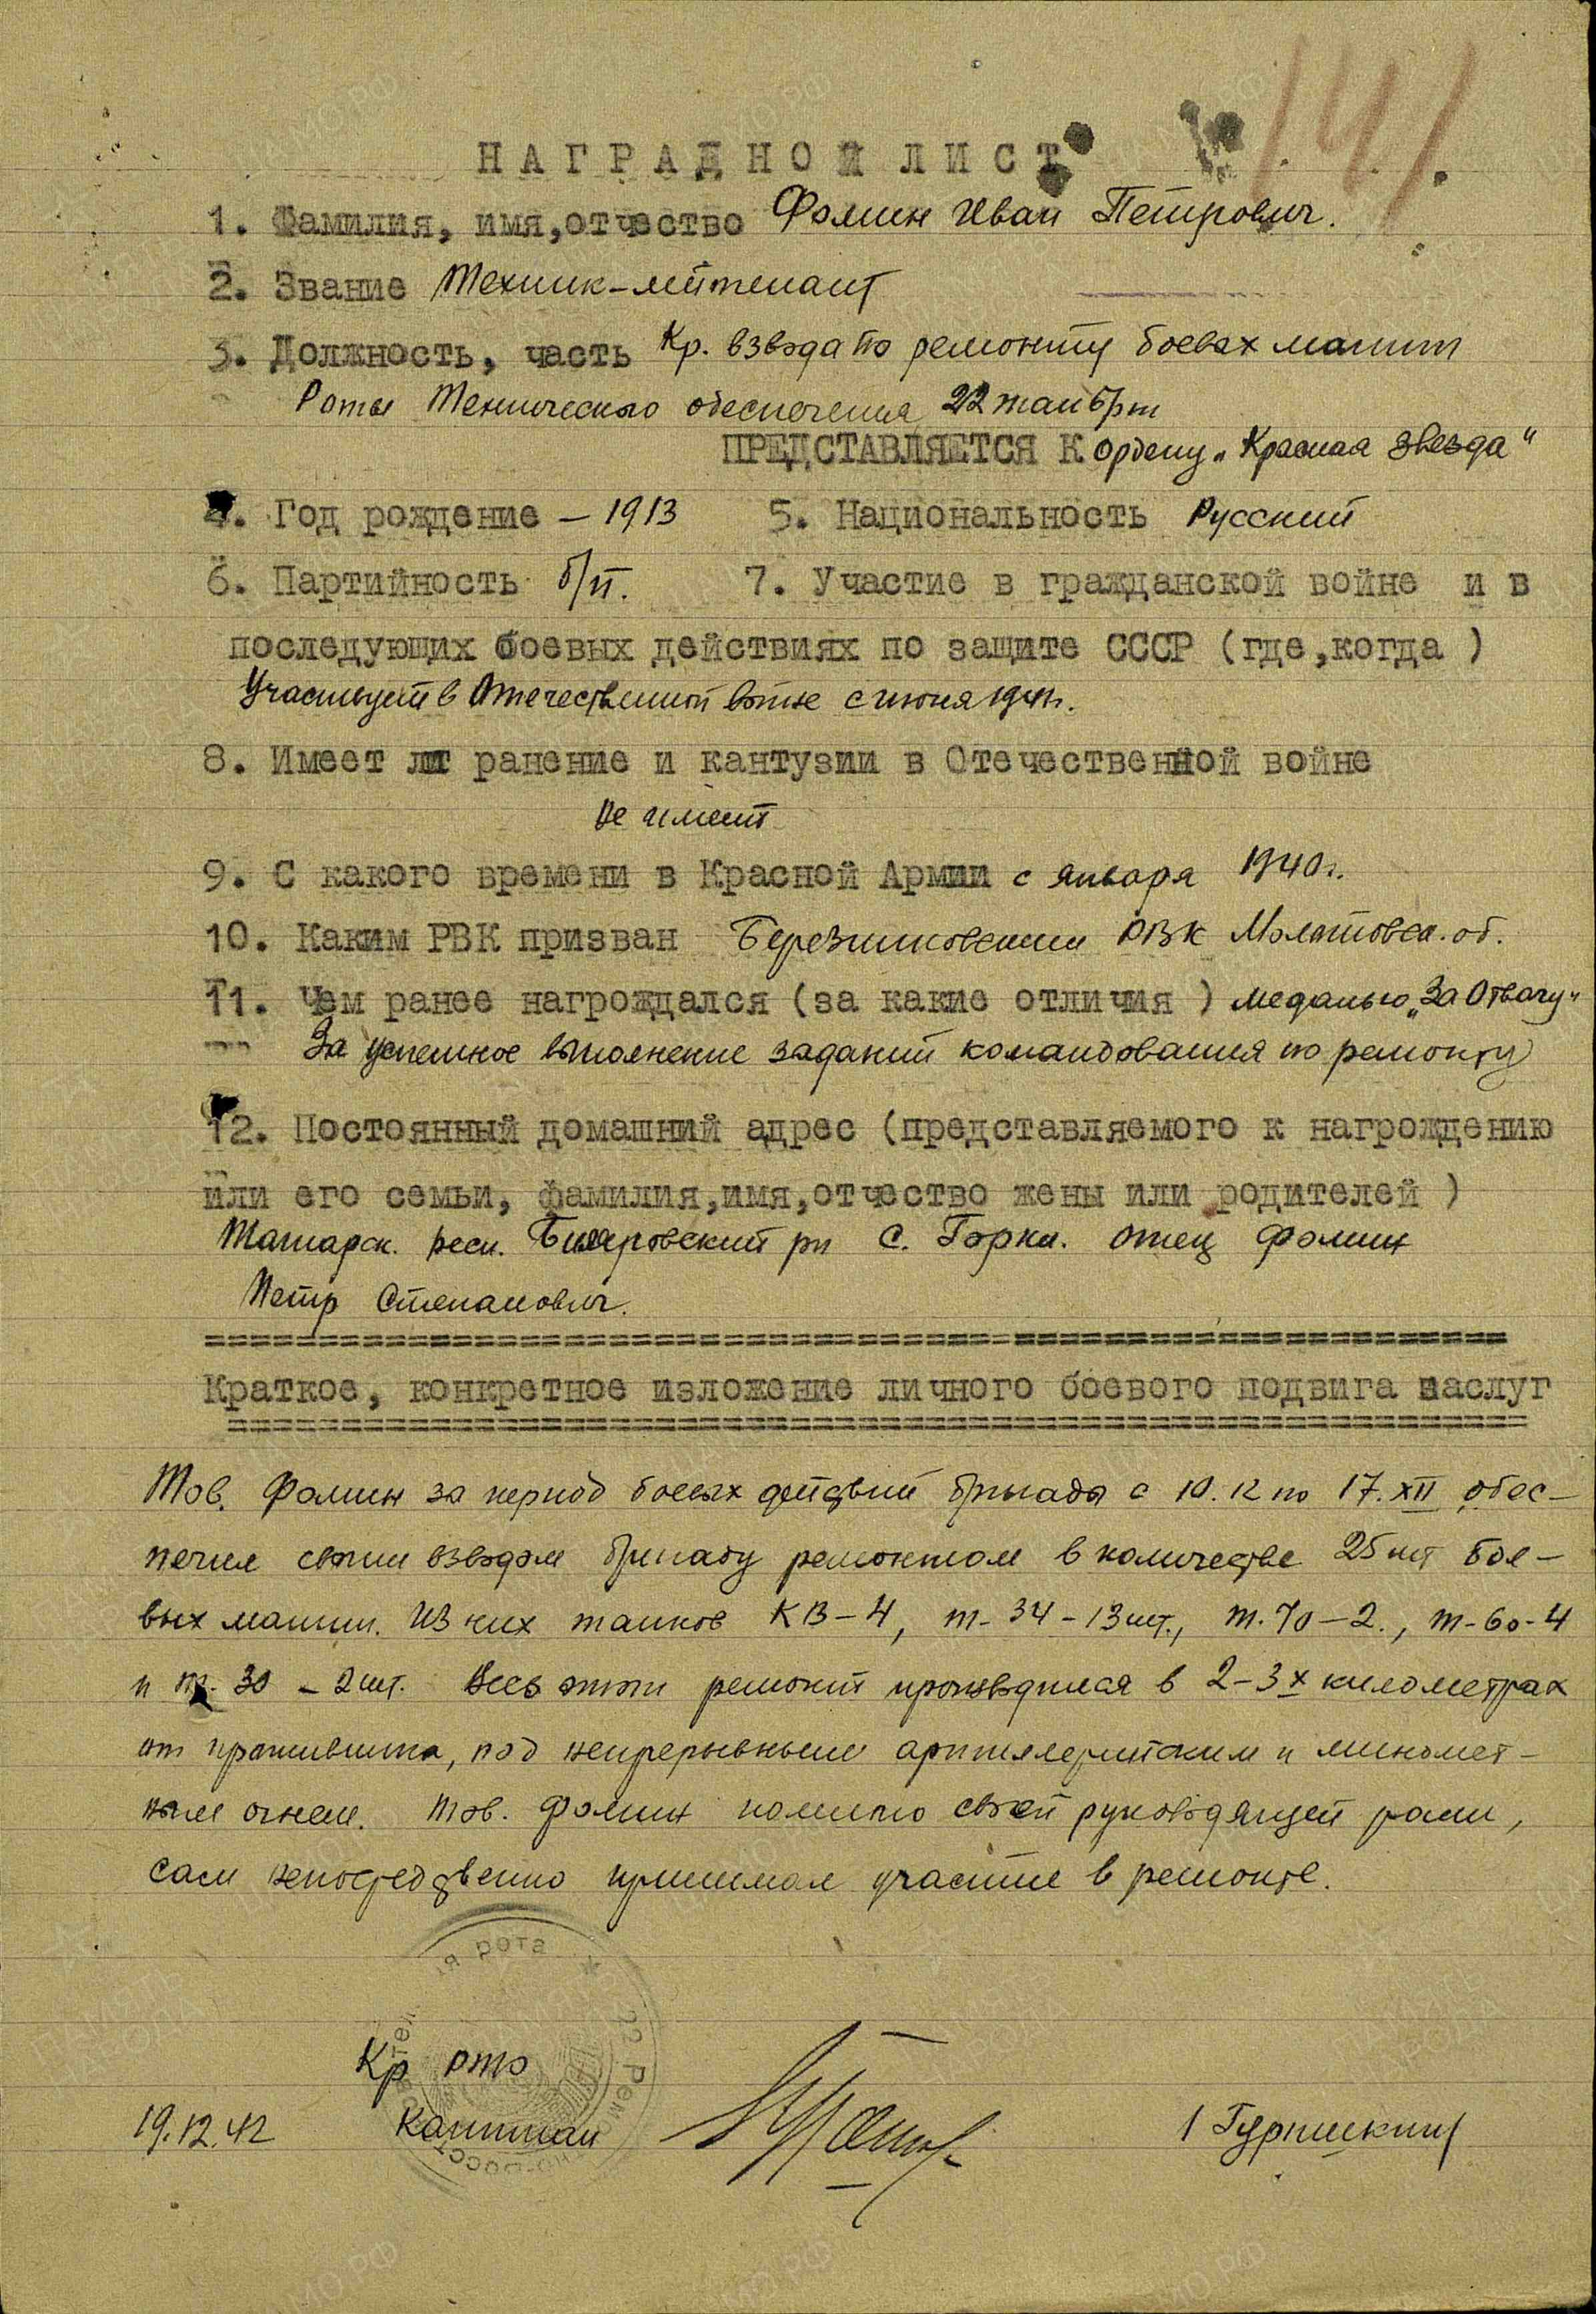 141
НАГРАДНОЙ ЛИСТ
1. Фамилия, имя,отчество Фомин Иван Петрович.
2. Звание Техник-лейтенант
3. Должность, часть Кр. взвода по ремонту боевых машин
Роты Технического обеспечения 22 танк бр
ПРЕДСТАВЛЯЕТСЯ К ордену „Красная звезда"
4. Год рождение – 1913 5. Национальность Русский
6. Партийность б/п. 7. Участие в гражданской войне и в
последующих боевых действиях по защите СССР (где,когда )
Участвует в Отечественной войне с июня 1941г.
8. Имеет ли ранение и кантузии в Отечественной войне
не имеет
9. С какого времени в Красной Армии с января 1940г.
10. Каким РВК призван Березниковским РВК Молотовск. об.
11. Чем ранее нагрождался (за какие отличия ) медалью „За Отвагу"
За успешное выполнение заданий командования по ремонту
12. Постоянный домашний адрес (представляемого к нагрождению
или его семьи, фамилия,имя,отчество жены или родителей )
Татарск. респ. Билярский рн С. Горки. отец Фомин
Петр Степанович.
Краткое, конкретное изложение личного боевого подвига заслуг
Тов. Фомин за период боевых действий бригады с 10.12 по 17.XII обес-
печил своим взводом бригаду ремонтом в количестве 25 шт бое-
вых машин. Из них танков КВ-4, т-34-13 шт., т.70-2., т-60-4
и т. 30 – 2 шт. Весь этот ремонт производился в 2-3х километрах
от противника, под непрерывным артиллерийским и миномет-
ным огнем. Тов. Фомин помимо своей руководящей роли,
сам непосредственно принимал участие в ремонте.
Кр рто
19.12.42 капитан / Гурниskin/